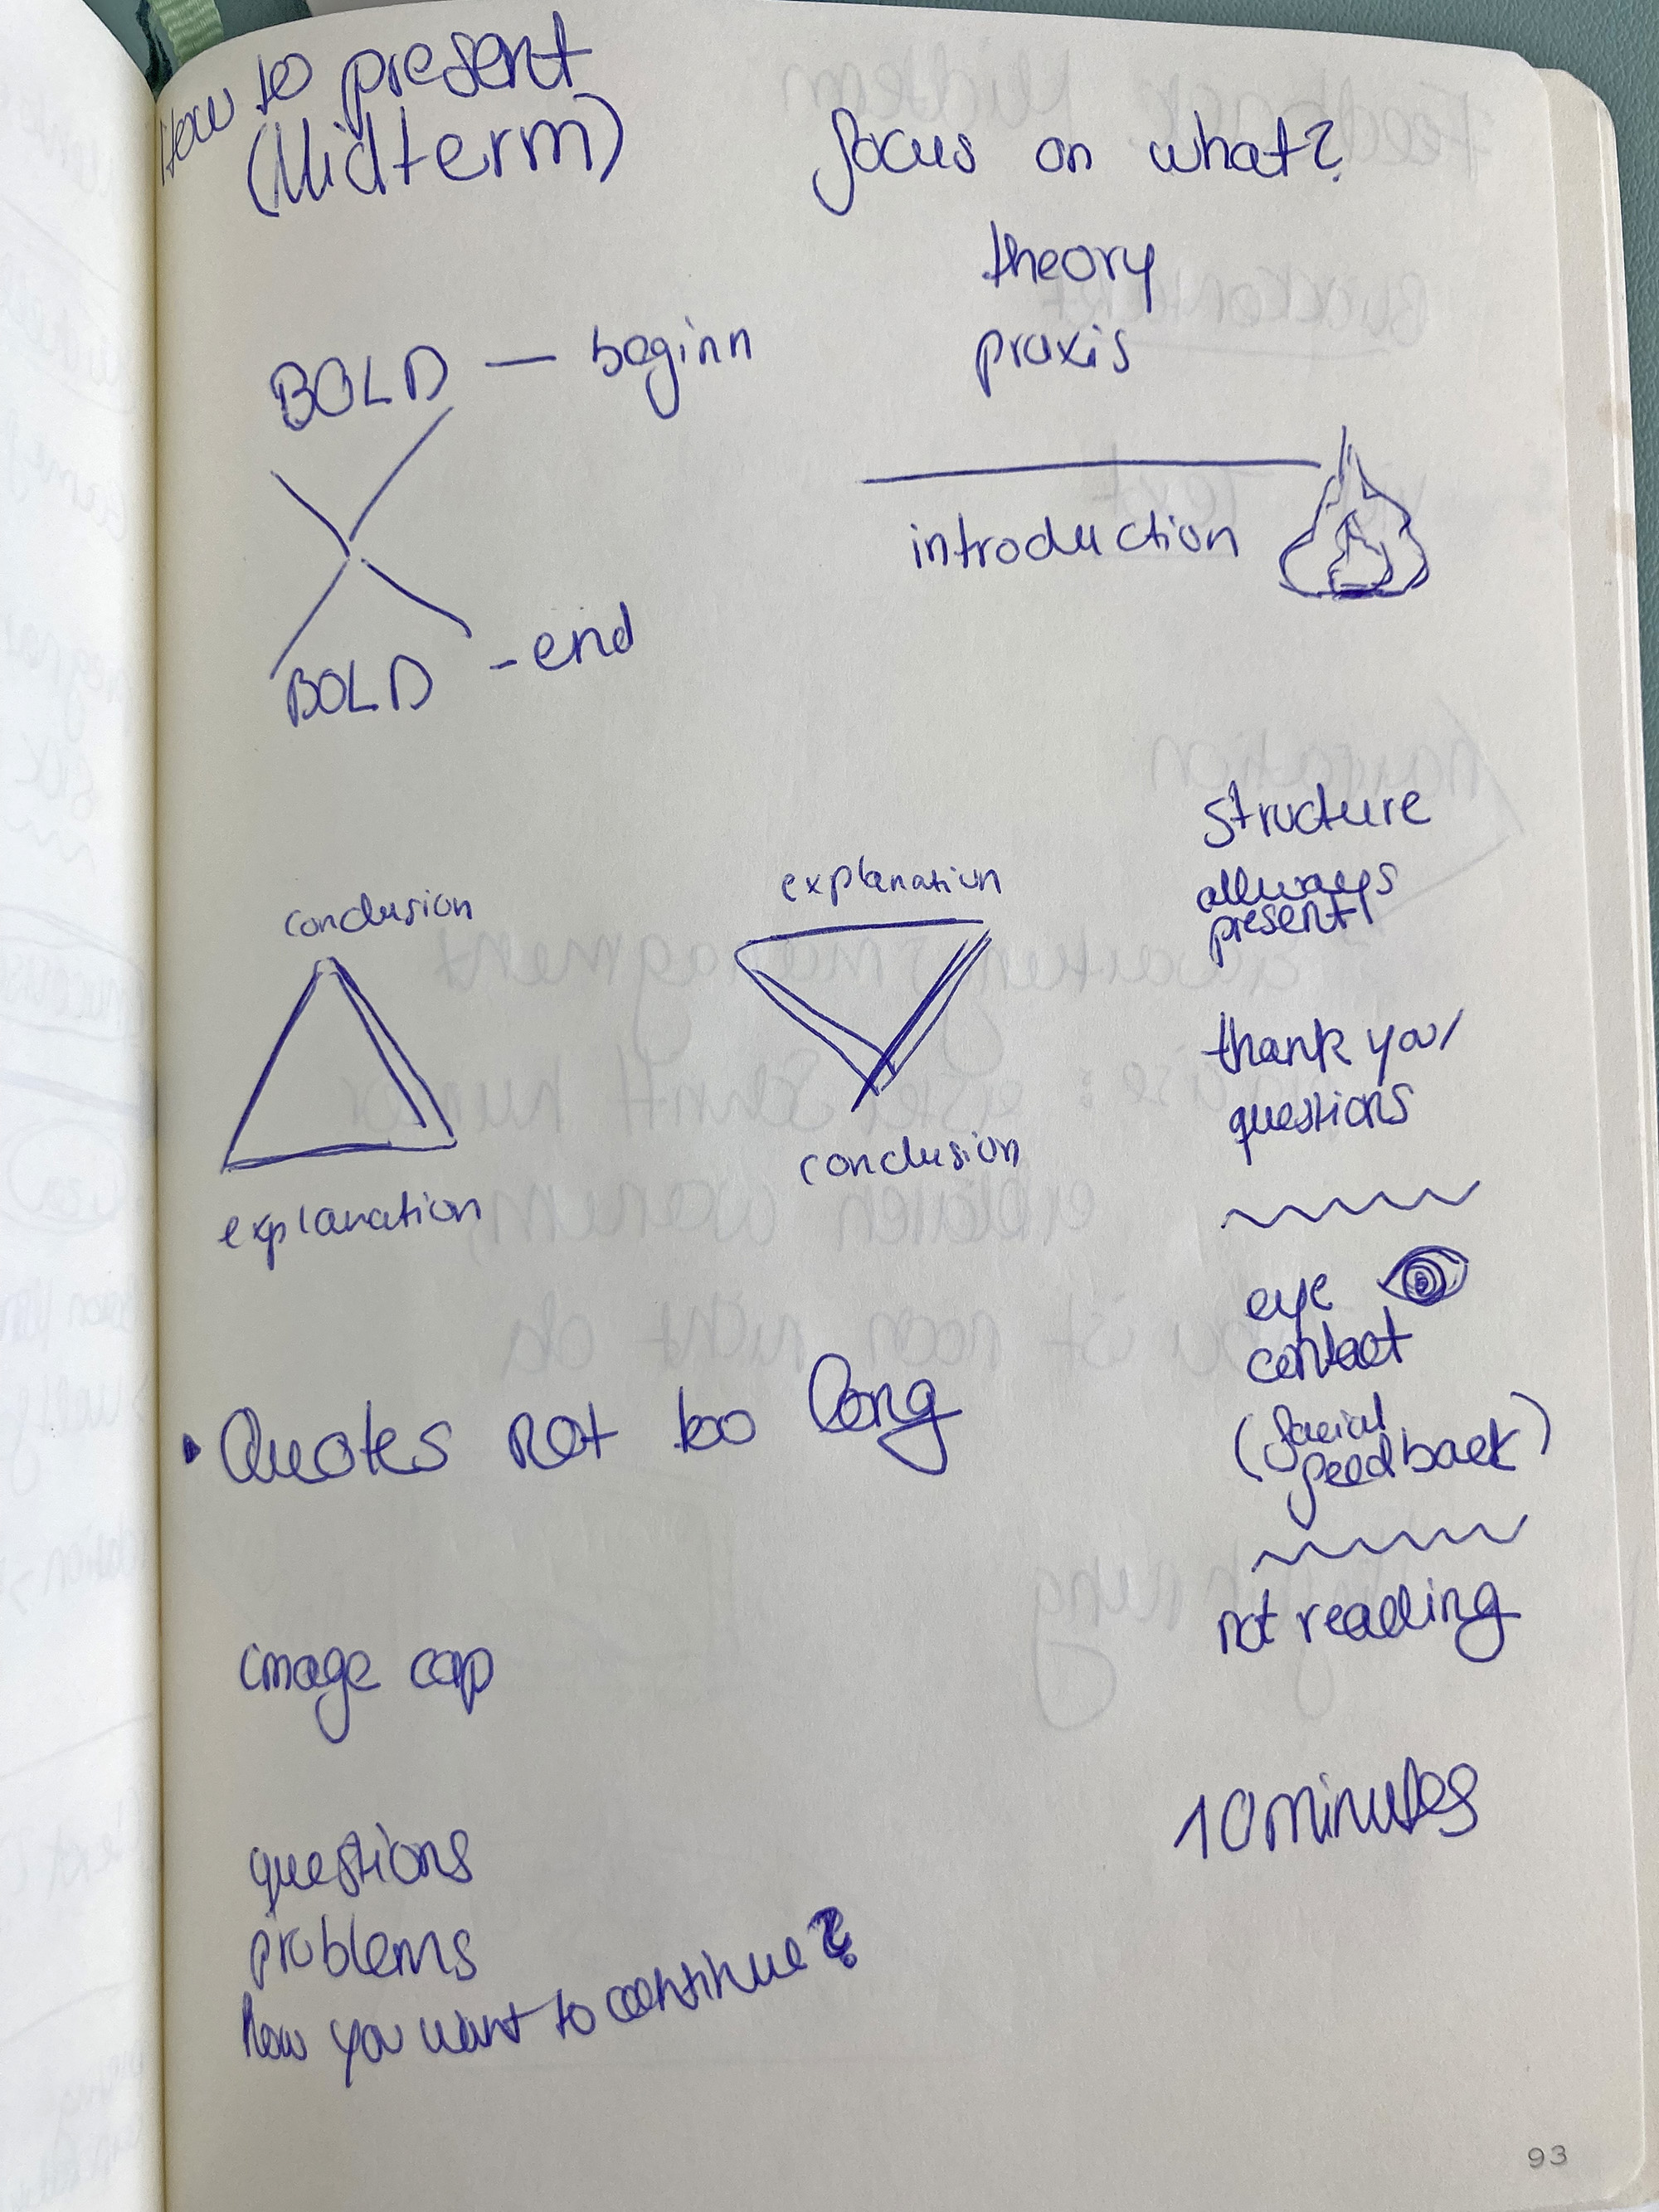 How to present
(Midterm)
focus on what?
theory
praxis
BOLD — beginn
introduction
BOLD - end
structure
allways
present!
conclusion
explanation
explanation
conclusion
thank you/
questions
eye
contact
(facial
feedback)
not reading
• Quotes not too long
image cap
10 minutes
questions
problems
how you want to continue?
93